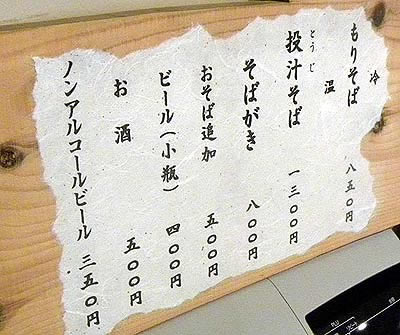 冷
もりそば 八五〇円
温
とうじ
投汁そば 一三〇〇円
そばがき 八〇〇円
おそば追加 五〇〇円
ビール（小瓶） 四〇〇円
お酒 五〇〇円
ノンアルコールビール 三五〇円